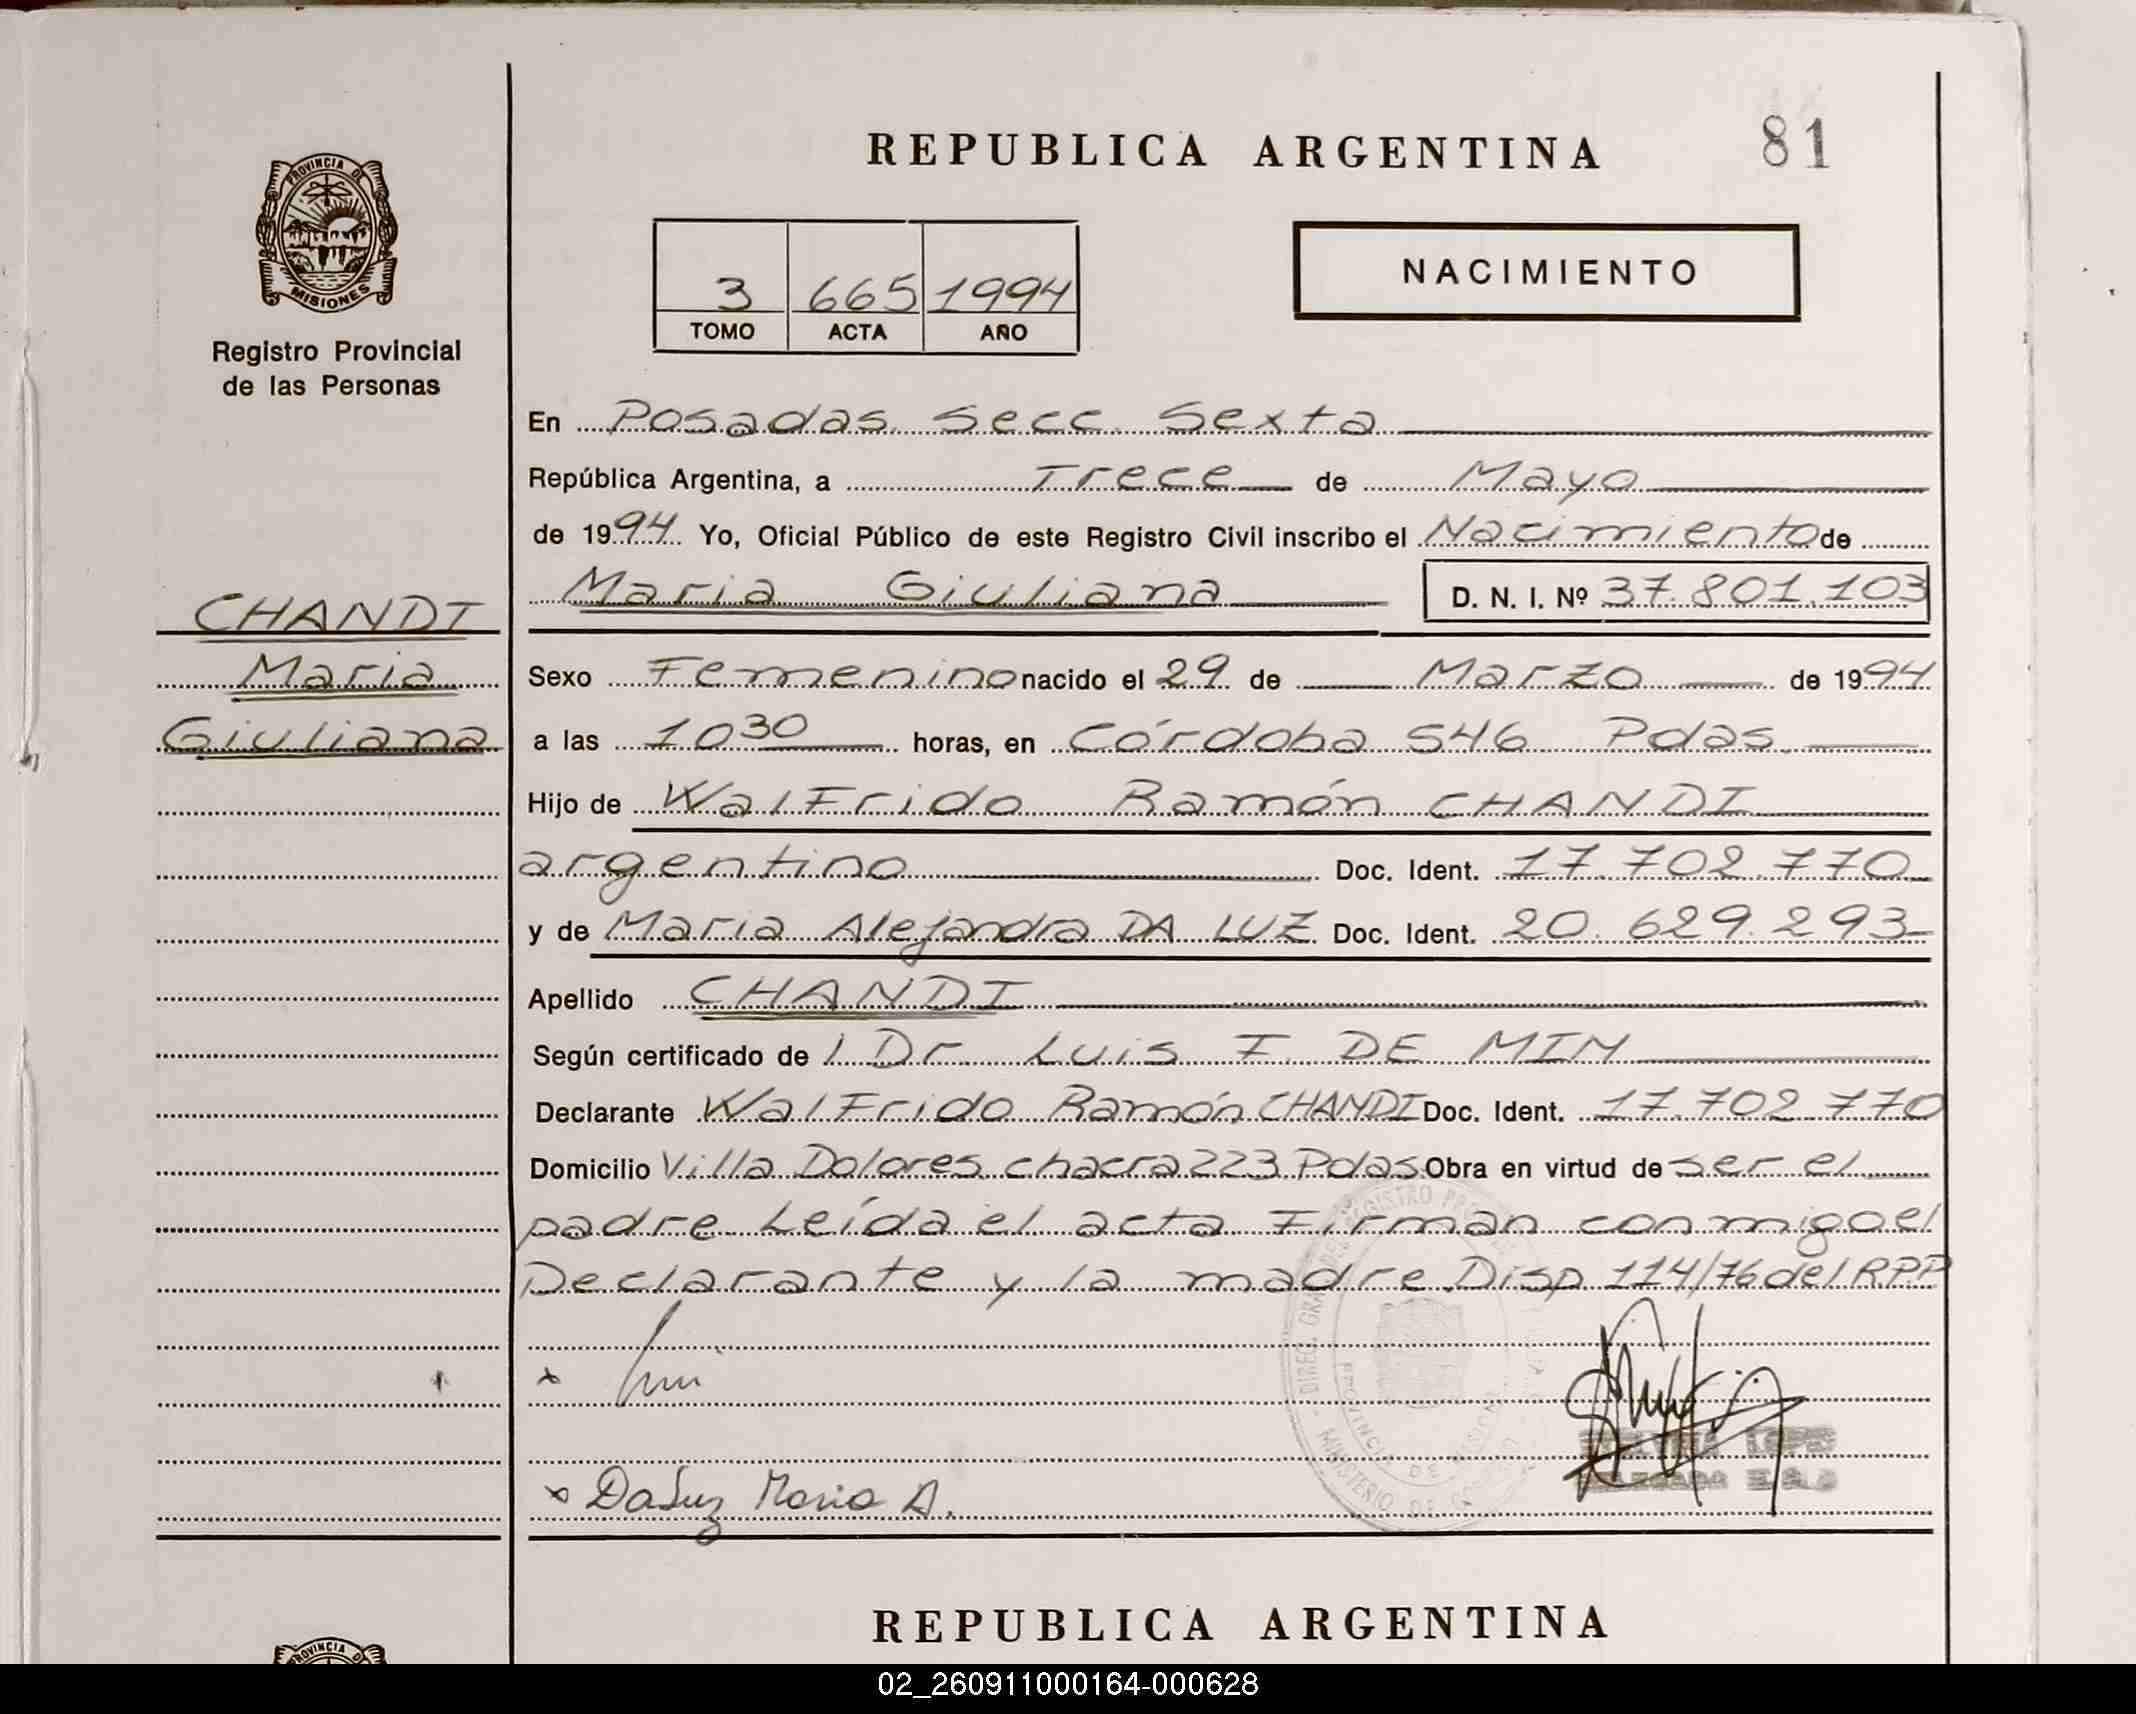 REPUBLICA ARGENTINA
81
PROVINCIA DE
MISIONES
Registro Provincial
de las Personas
3 665 1994
TOMO ACTA AÑO
NACIMIENTO
En Posadas Secc. Sexta
República Argentina, a Trece de Mayo
de 1994 Yo, Oficial Público de este Registro Civil inscribo el Nacimiento de
Maria Giuliana D. N. I. Nº 37.801.103
CHANDI
Maria
Giuliana
Sexo Femenino nacido el 29 de Marzo de 1994
a las 10 30 horas, en Córdoba 546 Pdas.
Hijo de Walfrido Ramón CHANDI
argentino Doc. Ident. 17.702.770
y de Maria Alejandra DA LUZ Doc. Ident. 20.629.293
Apellido CHANDI
Según certificado de l Dr. Luis F. DE MIM
Declarante Walfrido Ramón CHANDI Doc. Ident. 17.702.770
Domicilio Villa Dolores chacra 223 Pdas Obra en virtud de ser el
padre Leída el acta Firman conmigo el
Declarante y la madre Disp 114/76 del RPP
DaLuz Maria A.
LOPEZ
MINISTERIO DE
PROVINCIA DE
REPUBLICA ARGENTINA
PROVINCIA D
02_260911000164-000628